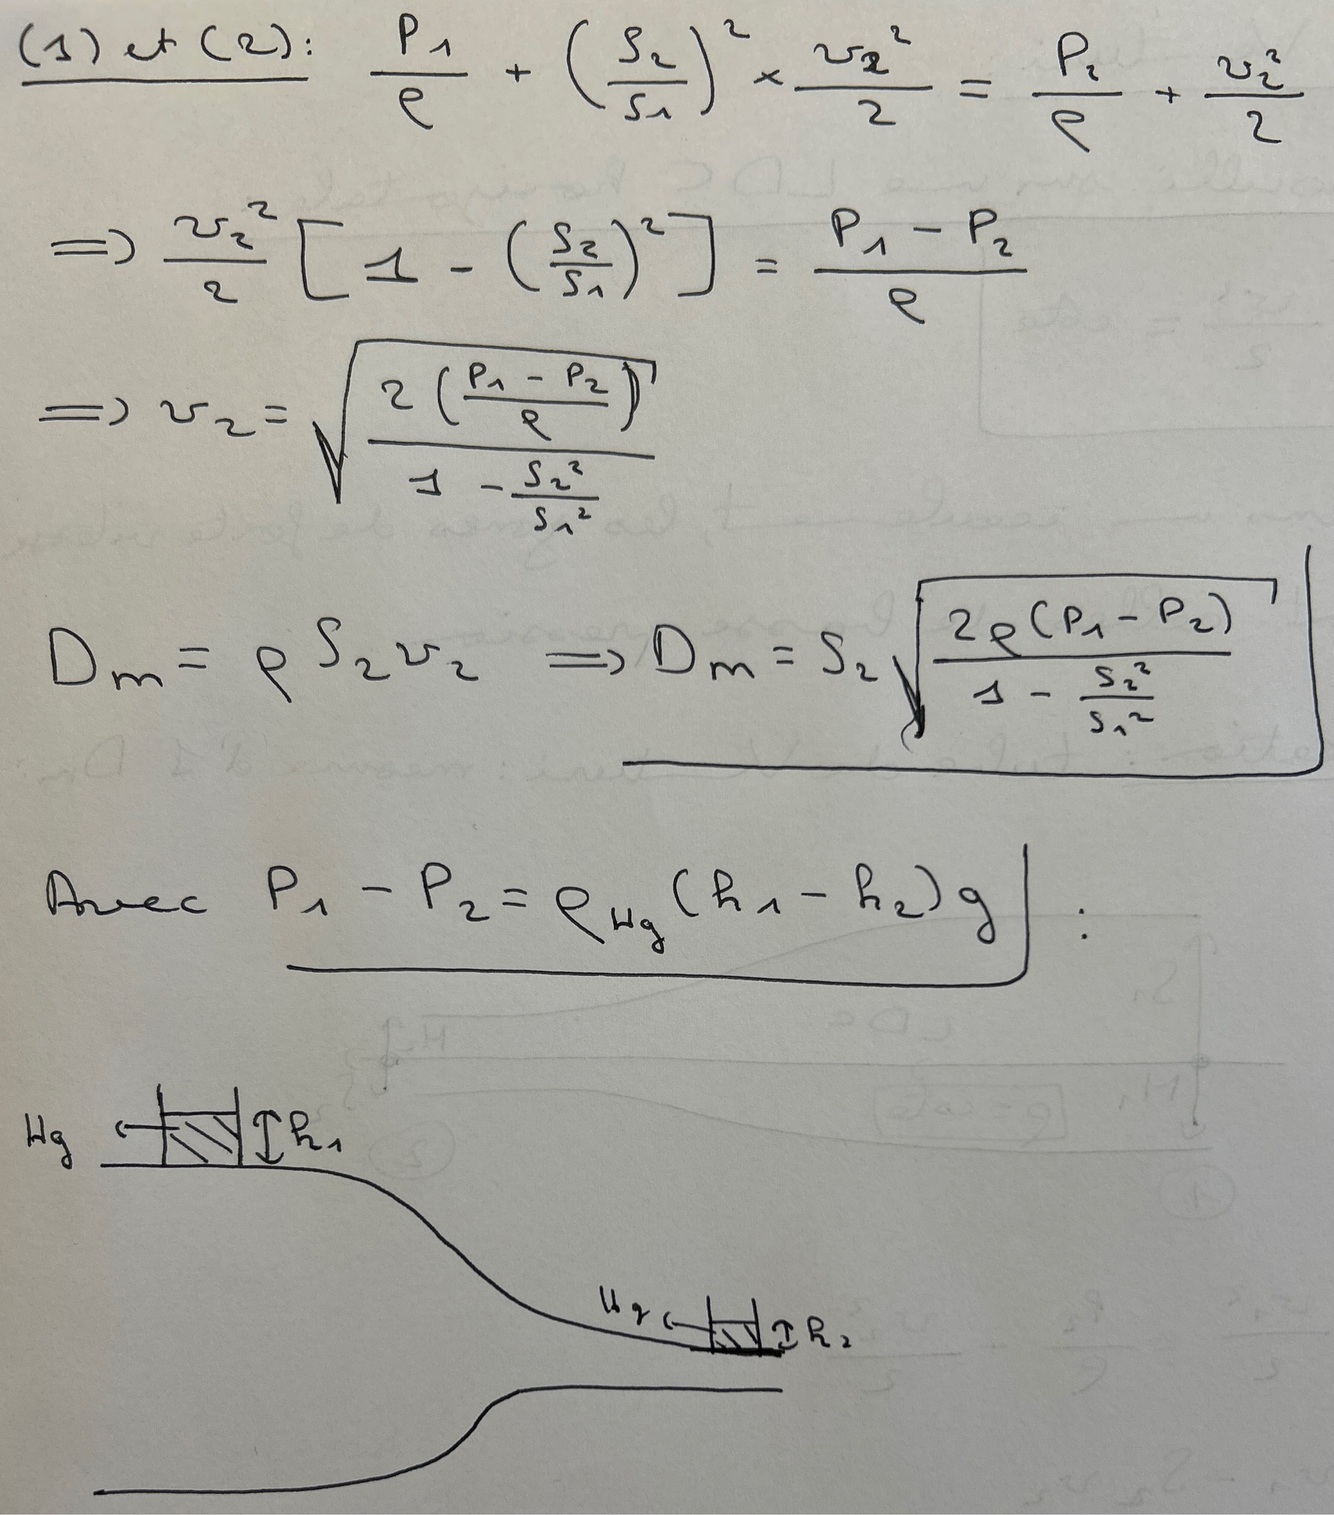 (1) et (2): P₁/ρ + (S₂/S₁)² × v₂²/2 = P₂/ρ + v₂²/2
=> v₂²/2 [1 - (S₂/S₁)²] = (P₁ - P₂)/ρ
=> v₂ = √(2((P₁ - P₂)/ρ) / (1 - S₂²/S₁²))
Dm = ρ S₂ v₂ => Dm = S₂ √(2ρ(P₁ - P₂) / (1 - S₂²/S₁²))
Avec P₁ - P₂ = ρHg (h₁ - h₂) g :
Hg h₁
Hg h₂